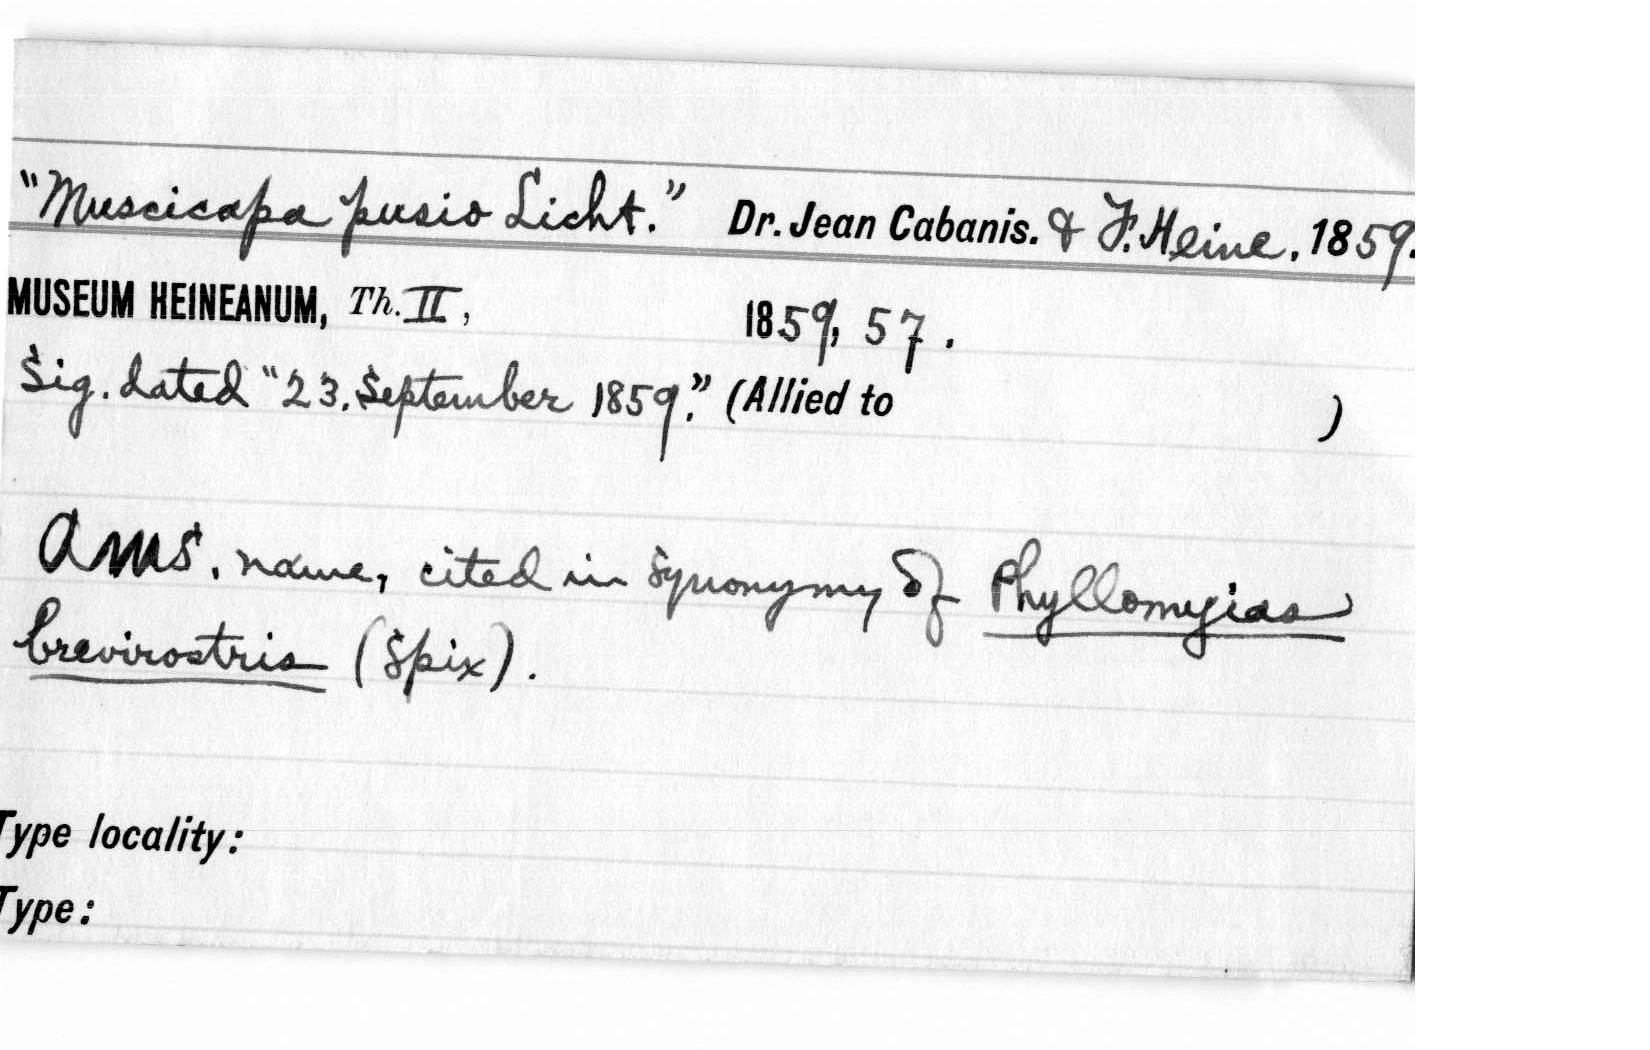 "Muscicapa pusio Licht." Dr. Jean Cabanis. & F. Heine, 1859.
MUSEUM HEINEANUM, Th. II, 1859, 57.
Sig. dated "23. September 1859." (Allied to )
A MS. name, cited in synonymy of Phyllomyias
brevirostris (Spix).
Type locality:
Type: